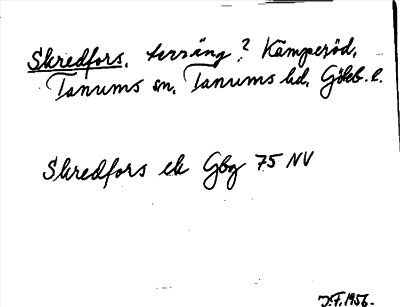 Skredfors, terräng? Kämperöd,
Tanums sn, Tanums hd, Göteb. l.
Skredfors ek Gbg 75 NV
J.F. 1956.